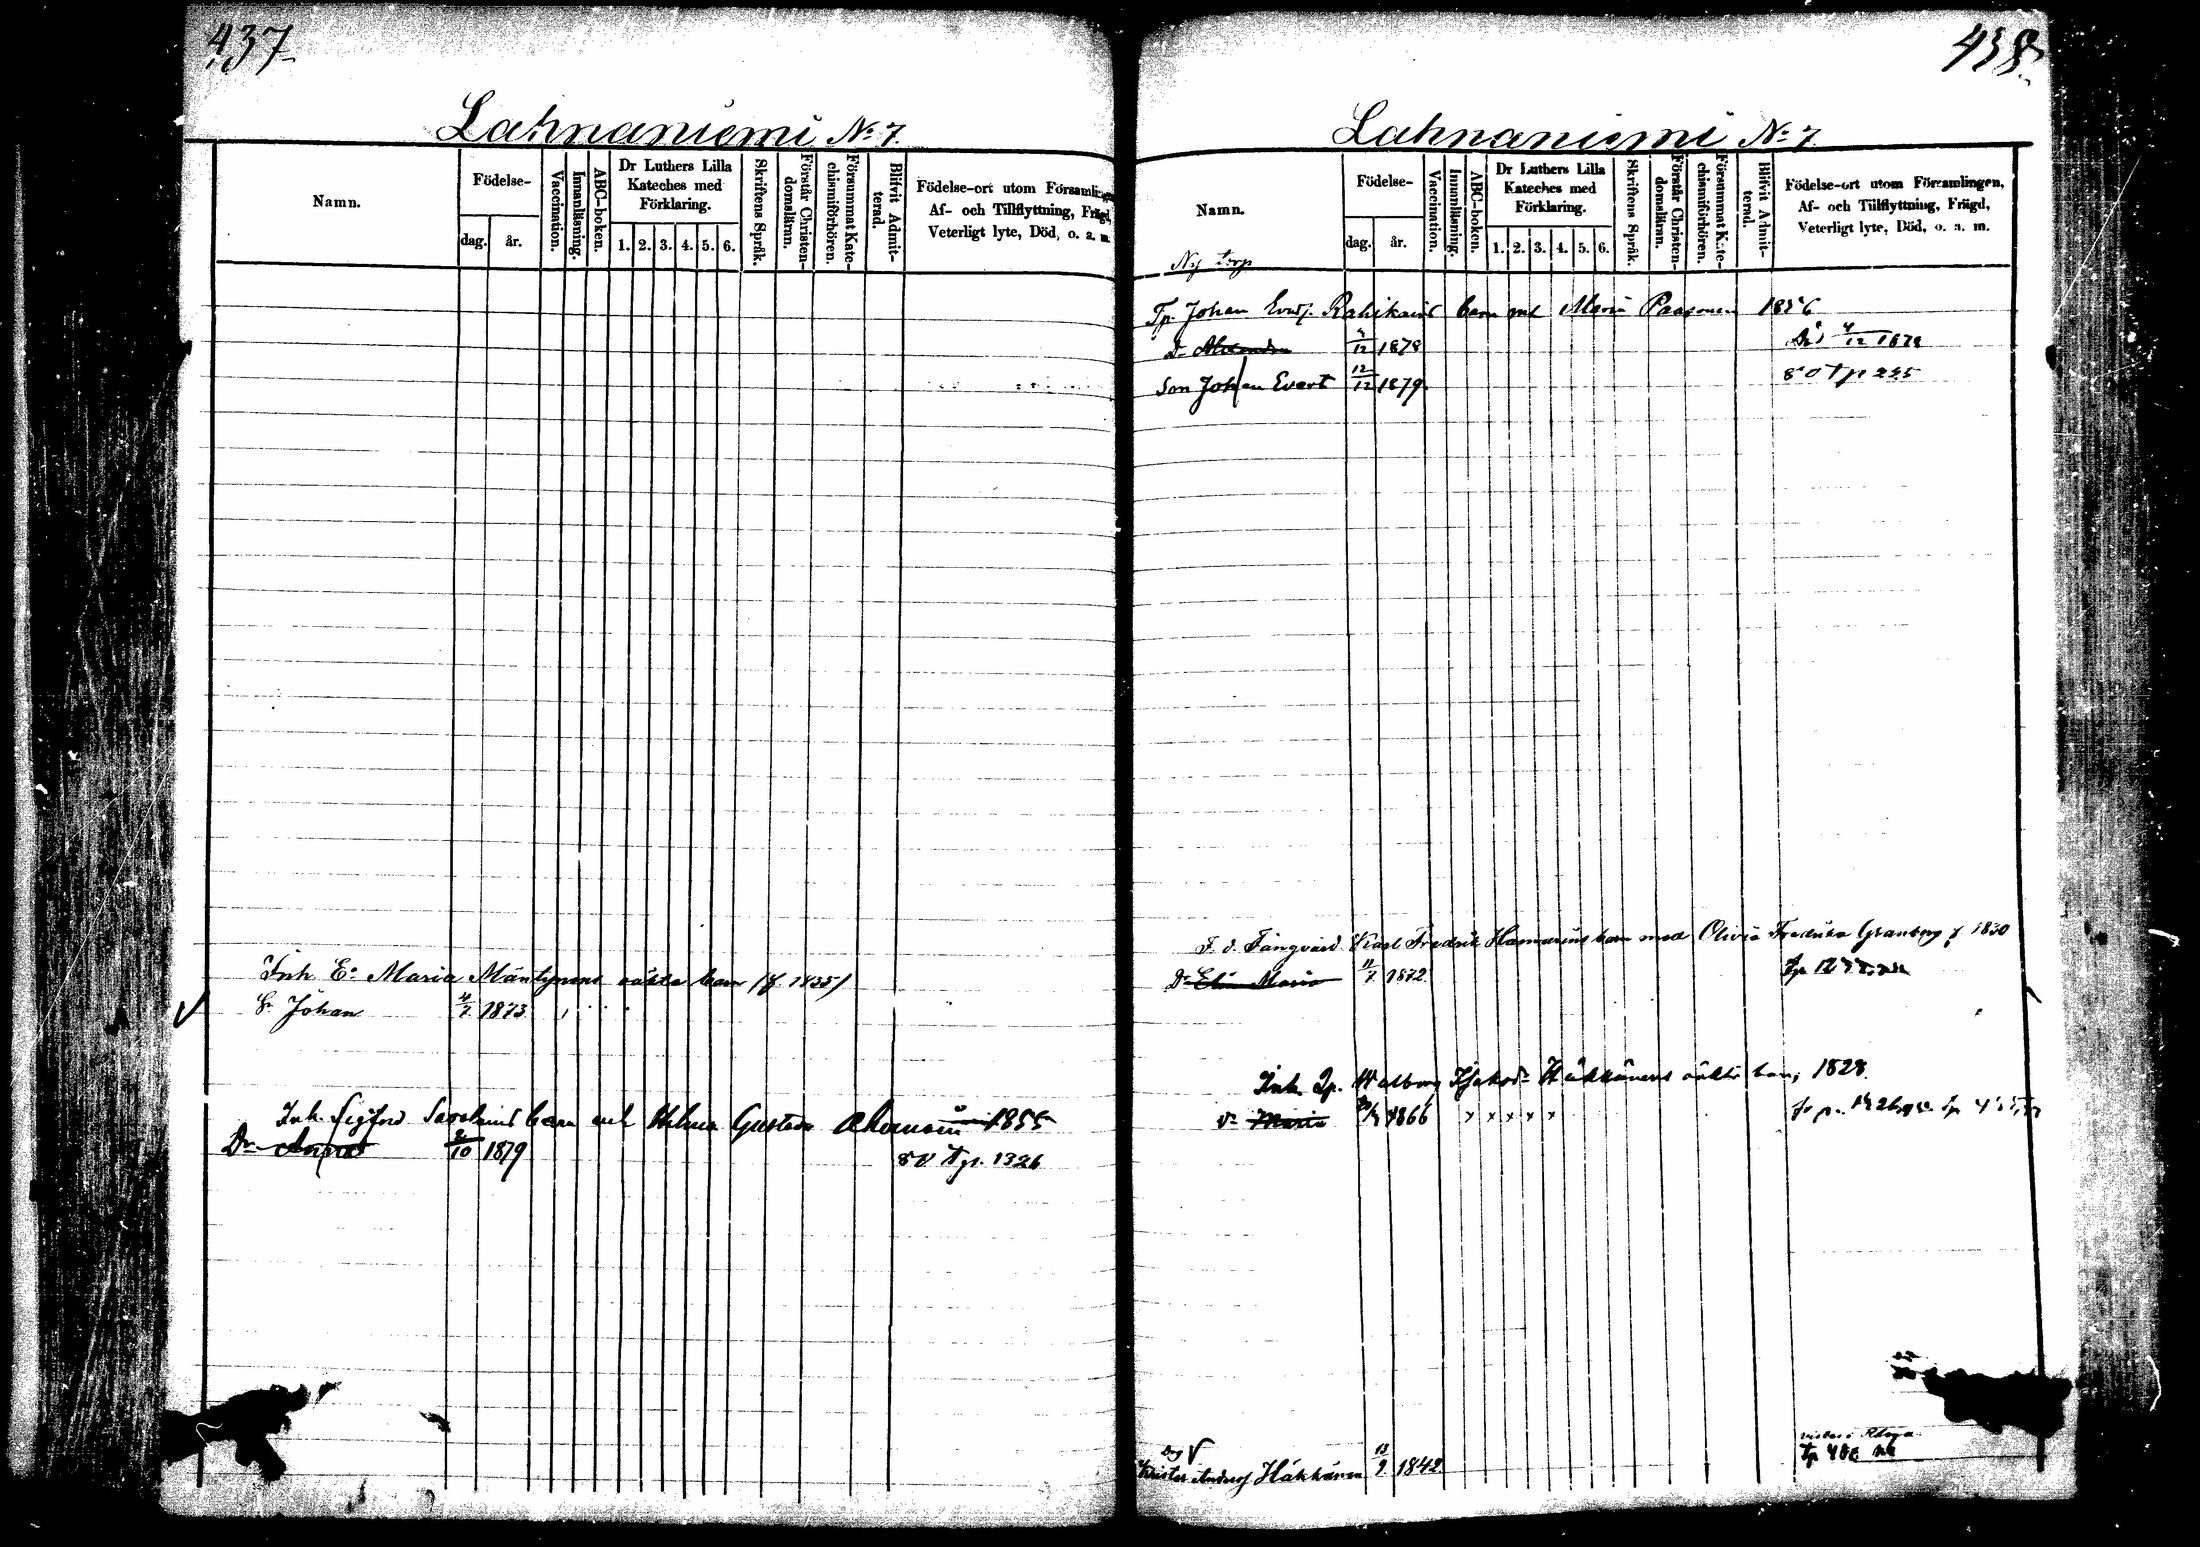 437
Lahnaniemi No 7.
Namn.
Födelse-
dag. år.
Vaccination.
Innanläsning.
ABC-boken.
Dr Luthers Lilla
Kateches med
Förklaring.
1. 2. 3. 4. 5. 6.
Skriftens Språk.
Förstår Christen-
domsläran.
Försummat Kate-
chismiförhören.
Blifvit Admit-
terad.
Födelse-ort utom Församlingen
Af- och Tillflyttning, Frägd,
Veterligt lyte, Död, o. a. m.
Inh. Ea Maria Mäntynens oäkta barn (f. 1835)
S. Johan 4/7 1873
Inh. Sigfrid Savolains barn mh Helena Gustava 1855
Dr Anna 2/10 1879 80 Tp. 1326
438
Lahnaniemi No 7.
Namn.
Födelse-
dag. år.
Vaccination.
Innanläsning.
ABC-boken.
Dr Luthers Lilla
Kateches med
Förklaring.
1. 2. 3. 4. 5. 6.
Skriftens Språk.
Förstår Christen-
domsläran.
Försummat Kate-
chismiförhören.
Blifvit Admit-
terad.
Födelse-ort utom Församlingen,
Af- och Tillflyttning, Frägd,
Veterligt lyte, Död, o. a. m.
Ny torp
Tp. Johan Rahikains barn mh Maria Paasonen 1856
D. Alexandra /12 1878 /12 1878
Son Johan Evert 12/12 1879 80 Tp 225
F. d. Fångvakt. Karl Fredrik Hamarins barn med Olivia Fredrika Granberg f 1830
Dr Maria 11/7 1872
Inh. Walborg Häkkänens oäkta barn, 1828
Dr Maria 1866 x x x x x
Krister Häkkänen 13/9 1842